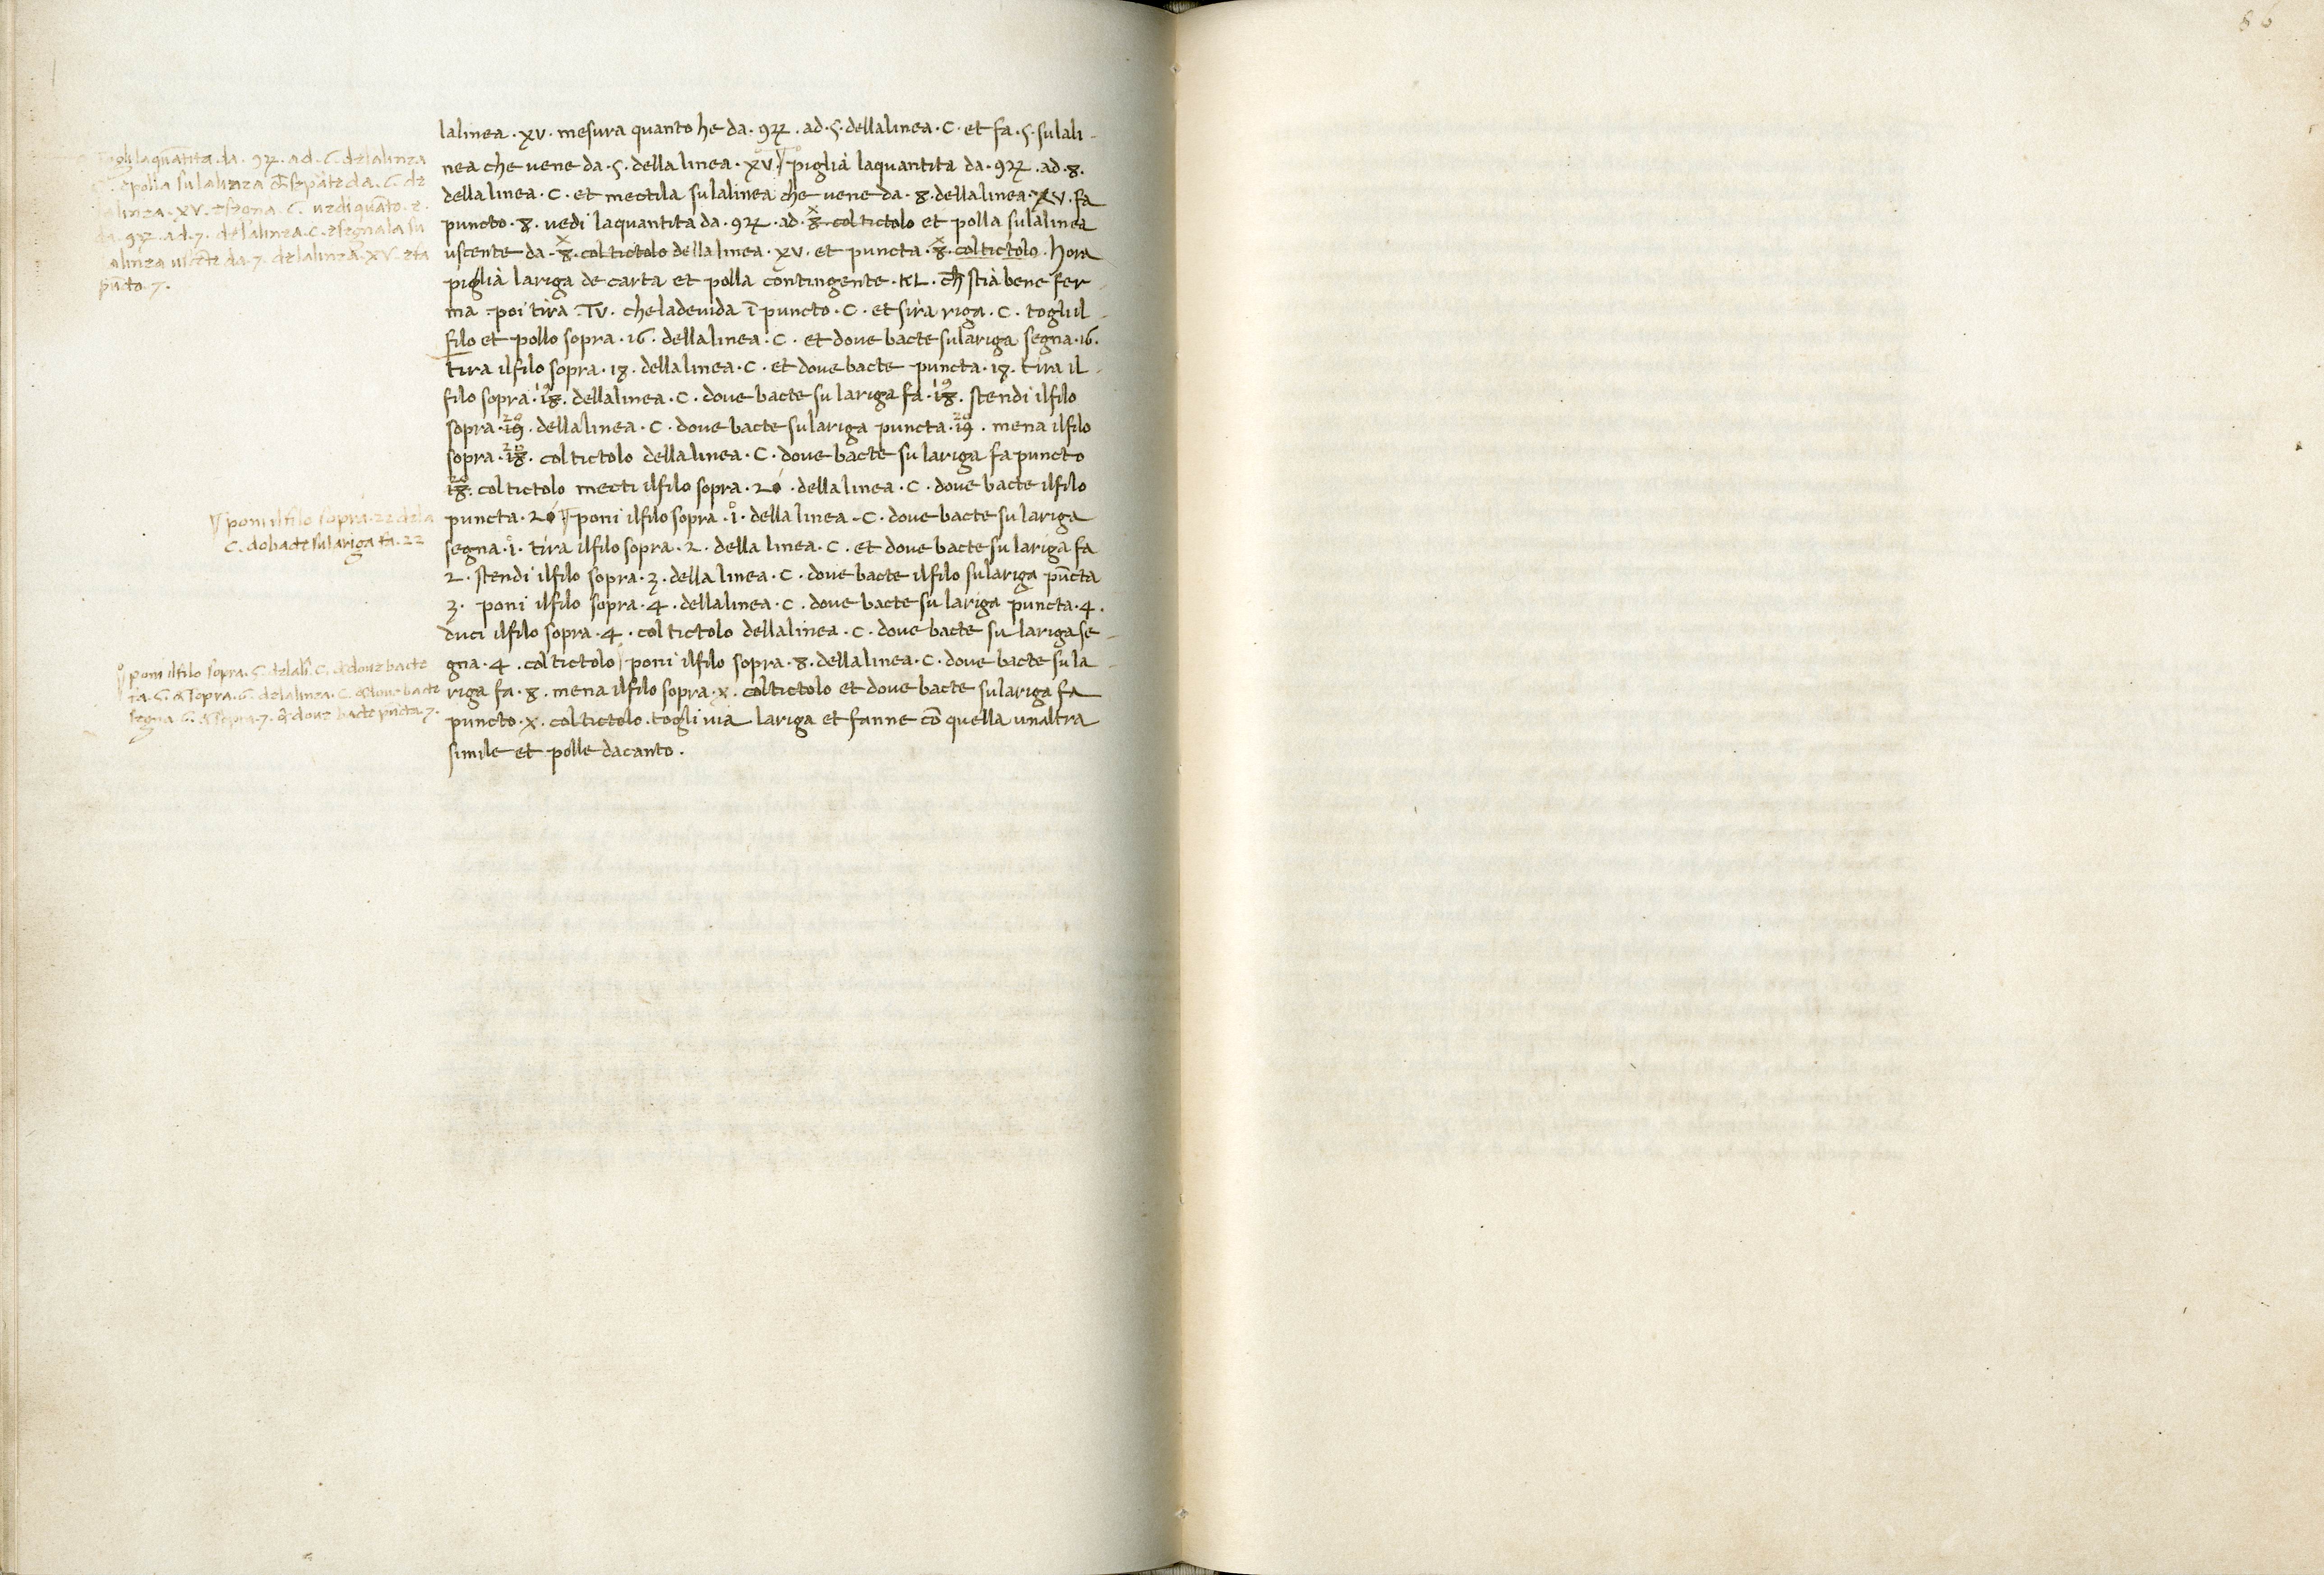 86
lalinea · xv · mesura quanto he da · 9 · ad · 5 · dellalinea · C · et fa · 5 · sulali-
nea che vene da · 5 · della linea · xv · piglia laquantita da · 9 · ad · 8 ·
dellalinea · C · et mectila sulalinea che vene da · 8 · dellalinea · xv · fa
puncto · 8 · vedi laquantita da · 9 · ad · x8 · col tictolo et polla sulalinea
uscente da · x8 · col tictolo dellalinea · xv · et puncta · x8 · coltictolo · hora
piglia lariga de carta et polla contingente · KL · ch̄ stia bene fer-
ma · poi tira · TV · cheladevida ī puncto · C · et sira riga · C · togli il
filo et pollo sopra · 16 · dellalinea · C · et doue bacte sulariga segna · 16 ·
tira ilfilo sopra · 18 · dellalinea · C · et doue bacte puncta · 18 · tira il
filo sopra · 19 · dellalinea · C · doue bacte su lariga fa · 19 · stendi ilfilo
sopra · 20 · dellalinea · C · doue bacte sulariga puncta · 20 · mena ilfilo
sopra · col tictolo dellalinea · C · doue bacte su lariga fa puncto
col tictolo mecti ilfilo sopra · dellalinea · C · doue bacte ilfilo
puncta · poni ilfilo sopra · 1 · della linea · C · doue bacte su lariga
segna · 1 · tira ilfilo sopra · 2 · della linea · C · et doue bacte su lariga fa
2 · stendi ilfilo sopra · 3 · della linea · C · doue bacte ilfilo sulariga pūcta
3 · poni ilfilo sopra · 4 · dellalinea · C · doue bacte su lariga puncta · 4 ·
duci ilfilo sopra · 4 · col tictolo dellalinea · C · doue bacte su lariga se-
gna · 4 · col tictolo poni ilfilo sopra · 8 · dellalinea · C · doue bacte su la
riga fa · 8 · mena ilfilo sopra · x · coltictolo et doue bacte sulariga fa
puncto · x · col tictolo · togli via lariga et fanne cō quella unaltra
simile et polle dacanto ·
laquātita · da · 9 · ad · 6 · delalinea
polla sulalinea da · 6 · de
lalinea · XV · 6 · uedi quāto · e ·
da · 9 · ad · 7 · delalinea · C · segnala su
alinea uscēte da · 7 · delalinea · XV · fa
pūcto · 7 ·
poni ilfilo sopra · 22 dela
C · do bacte sulariga fa · 22
poni ilfilo sopra · 5 · C · doue bacte
fa · 5 · sopra · 6 · delalinea · C · doue bacte
segna · 6 · sopra · 7 · doue bacte pūcta 7 ·